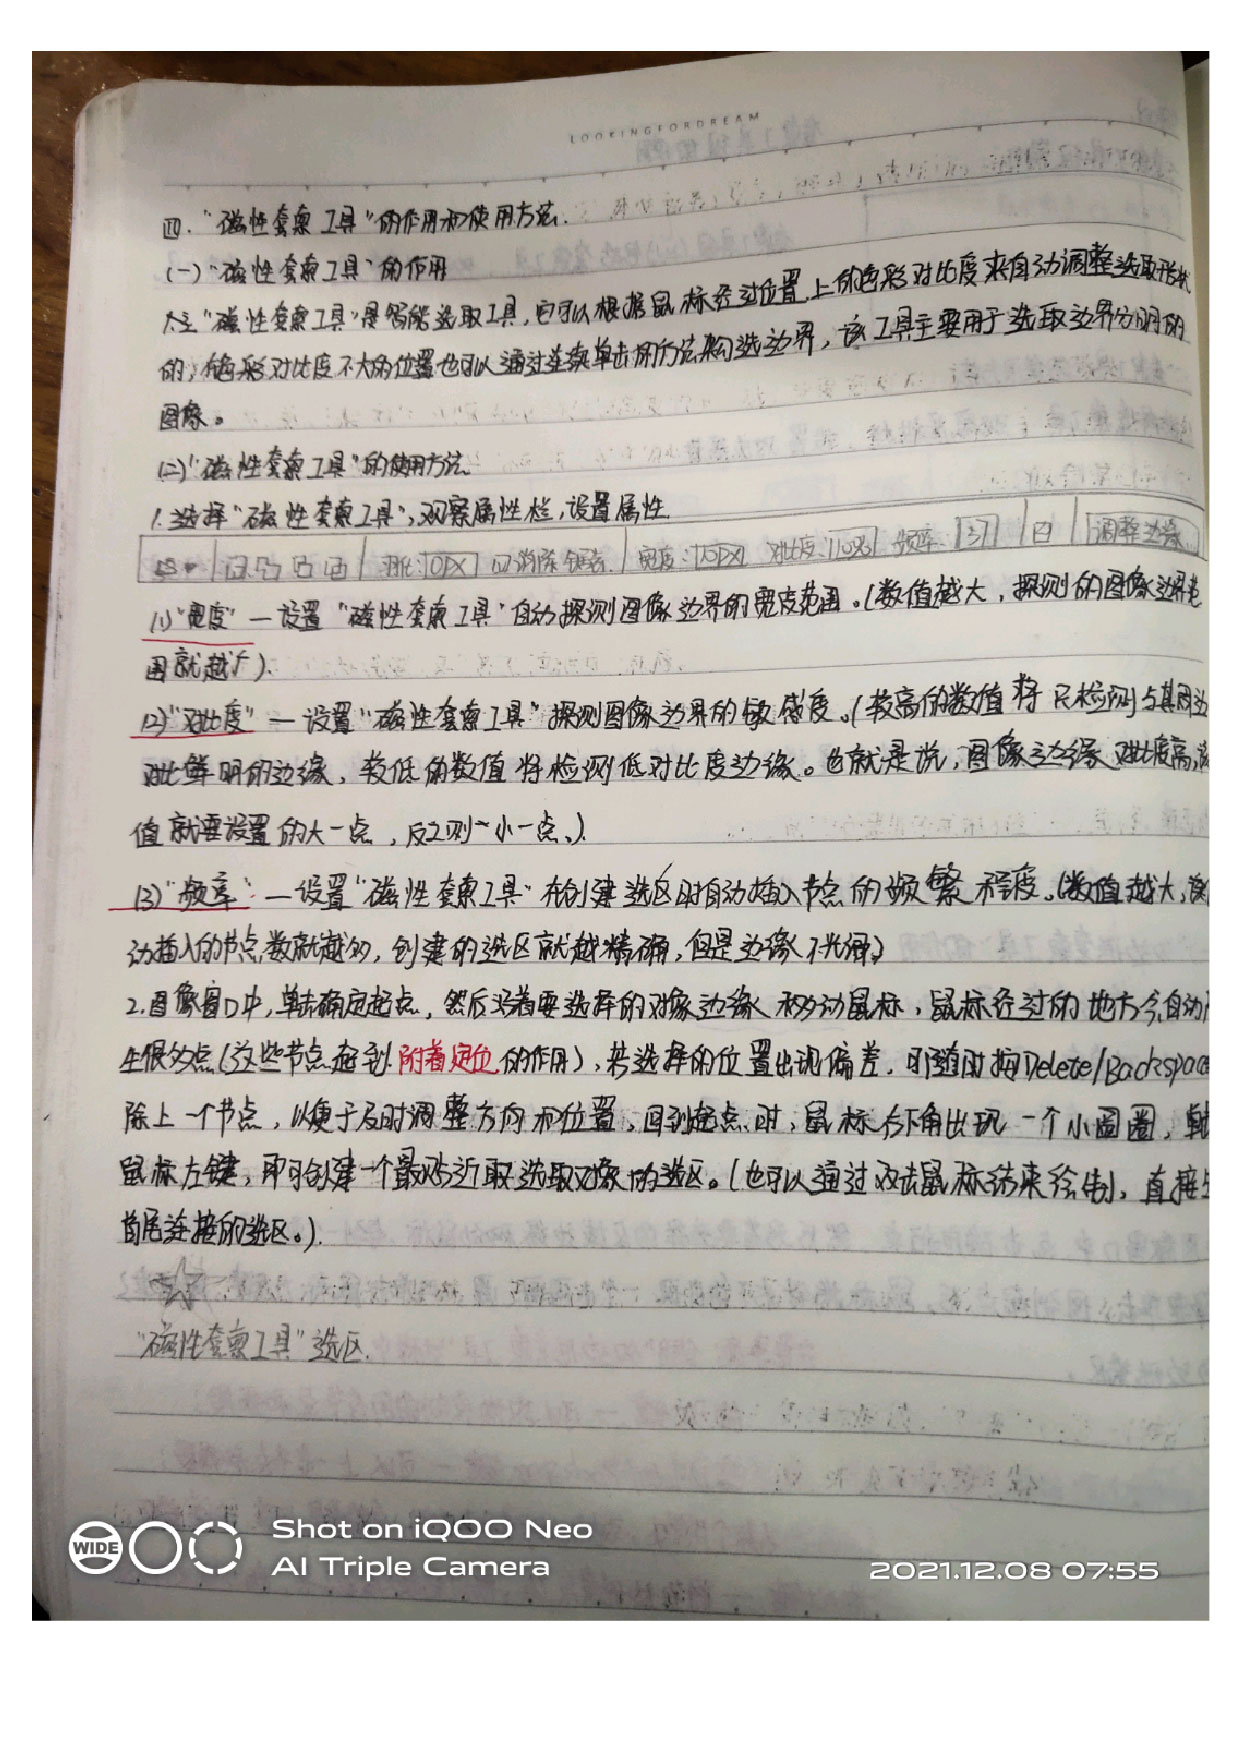 LOOKINGFORDREAM
四."磁性套索工具"的作用和使用方法.
(一)"磁性套索工具"的作用
"磁性套索工具"是智能选取工具,它可以根据鼠标经过位置上的色彩对比度来自动调整选取形状
的,色彩对比度不大的位置也可以通过连续单击的方法来勾选边界,该工具主要用于选取边界分明的
图像。
(二)"磁性套索工具"的使用方法.
1.选择"磁性套索工具",观察属性栏,设置属性.
羽化:0PX 消除锯齿 宽度:10PX 对比度:10% 频率: 57 调整边缘
(1)"宽度"—设置"磁性套索工具"自动探测图像边界的宽度范围。(数值越大,探测的图像边界范
围就越广).
(2)"对比度"—设置"磁性套索工具"探测图像边界的敏感度。(较高的数值将只检测与其周边
对比鲜明的边缘,较低的数值将检测低对比度边缘。也就是说,图像边缘对比度高,该
值就要设置的大一点,反之则小一点。)
(3)"频率"—设置"磁性套索工具"在创建选区时自动插入节点的频繁程度。(数值越大,自
动插入的节点数就越多,创建的选区就越精确,但是边缘不光滑)
2.图像窗口中,单击确定起点,然后沿着要选择的对象边缘移动鼠标,鼠标经过的地方会自动产
生很多点(这些节点起到附着定位的作用),若选择的位置出现偏差,可随时按Delete/Backspace
除上一个节点,以便于及时调整方向和位置,回到起点时,鼠标右下角出现一个小圆圈,单击
鼠标左键,即可创建一个最贴近取选取对象的选区。(也可以通过双击鼠标结束绘制,直接生
首尾连接的选区。).
"磁性套索工具"选区.
WIDE
Shot on iQOO Neo
AI Triple Camera
2021.12.08 07:55